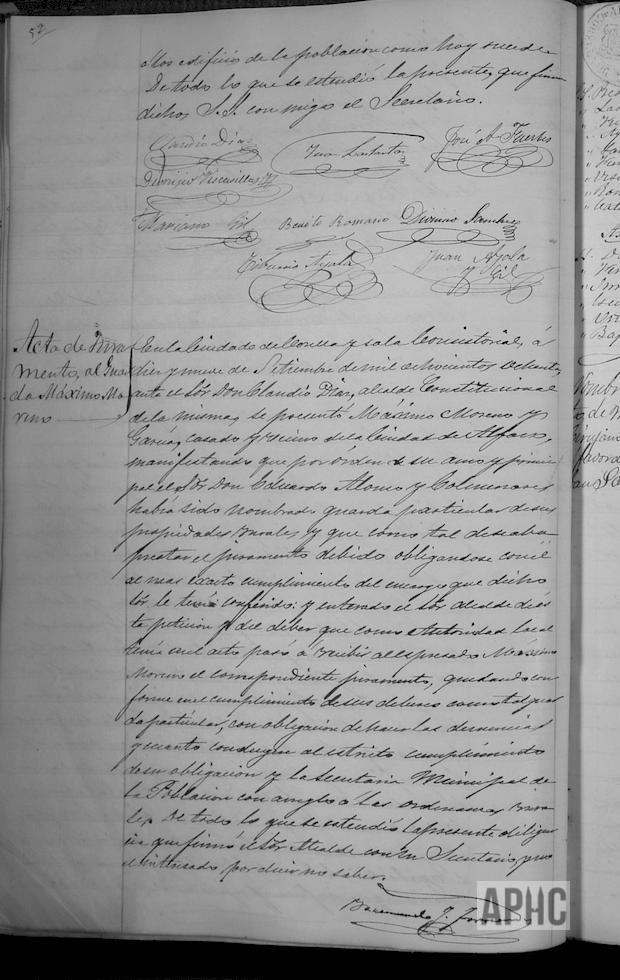 52
otros edificios de la poblacion como hoy sucede
De todo lo que se estendió la presente, que firman
dichos S.S. conmigo el Secretario.
Claudio Diaz
Juan
José A. Fuertes
Dionisio Viscasillas
Mariano Gil
Benito Romano
Divino Sanchez
Tiburcio Ayala
Juan Ayola
y Gil
Acta de Jura
mento, al Guar
da Máximo Mo
reno
En la Ciudad de Corella y sala Consistorial, á
diez y nueve de Setiembre de mil ochocientos ochenta,
ante el Sór Don Claudio Diaz, alcalde Constitucional
de la misma, se presentó Máximo Moreno y
Garcia, casado y vecino de la Ciudad de Alfaro,
manifestando que por órden de su amo y princi
pal el Sór Don Eduardo Alonso y Colmenares
habia sido nombrado guarda particular de sus
propiedades rurales y que como tal deseaba
prestar el juramento debido obligandose con él
al mas exacto cumplimiento del encargo que dicho
Sór le tenia conferido: y enterado el Sór alcalde de es
ta peticion y del deber que como Autoridad local
tenia en el acto pasó á recibir al espresado Máximo
Moreno el correspondiente juramento, quedando con
forme en el cumplimiento de sus deberes como tal guar
da particular, con obligacion de hacer las denuncias
y cuanto conduzca al estricto cumplimiento
de su obligacion y la secretaria Municipal de
la Poblacion con arreglo á las ordenanzas rura
les De todo lo que se estendió la presente diligen
cia que firmó el Sór Alcalde con mi Secretario, pues
el interesado por decir no saber.
APHC